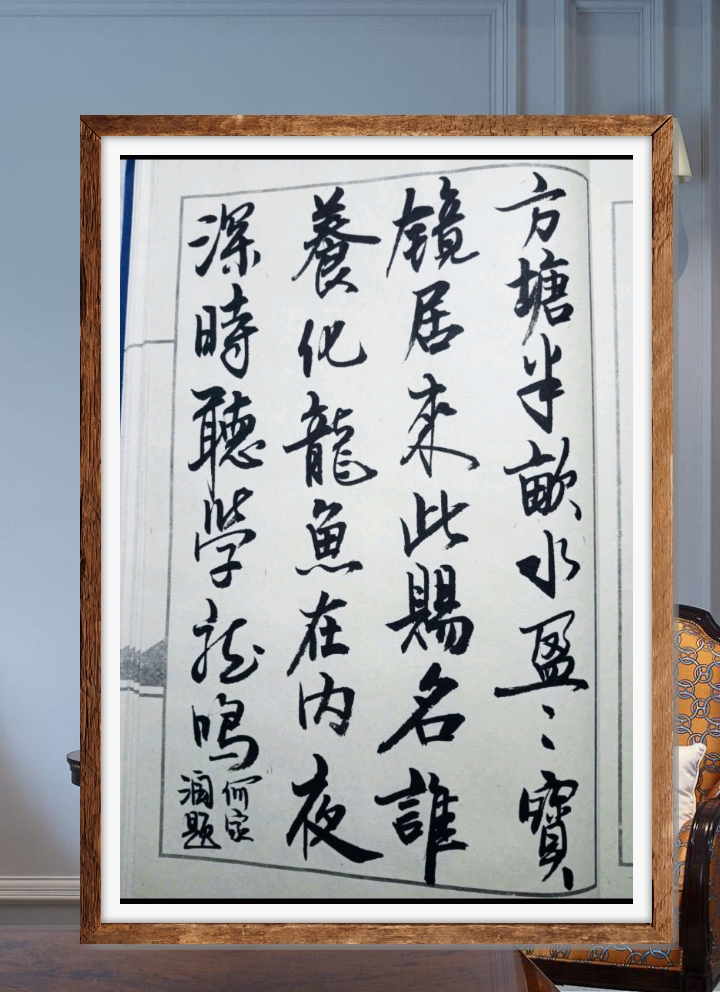 方塘半畝水盈〻寶
鏡居來此賜名誰
養化龍魚在内夜
深時聽學龍鳴
何定
潤題